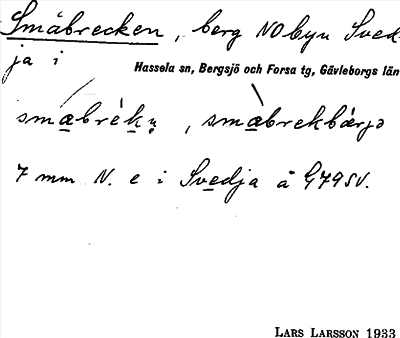 Småbrecken, berg NO byn Sved-
ja i
Hassela sn, Bergsjö och Forsa tg, Gävleborgs län
7 mm N. e i Svedja å G79SV.
LARS LARSSON 1933